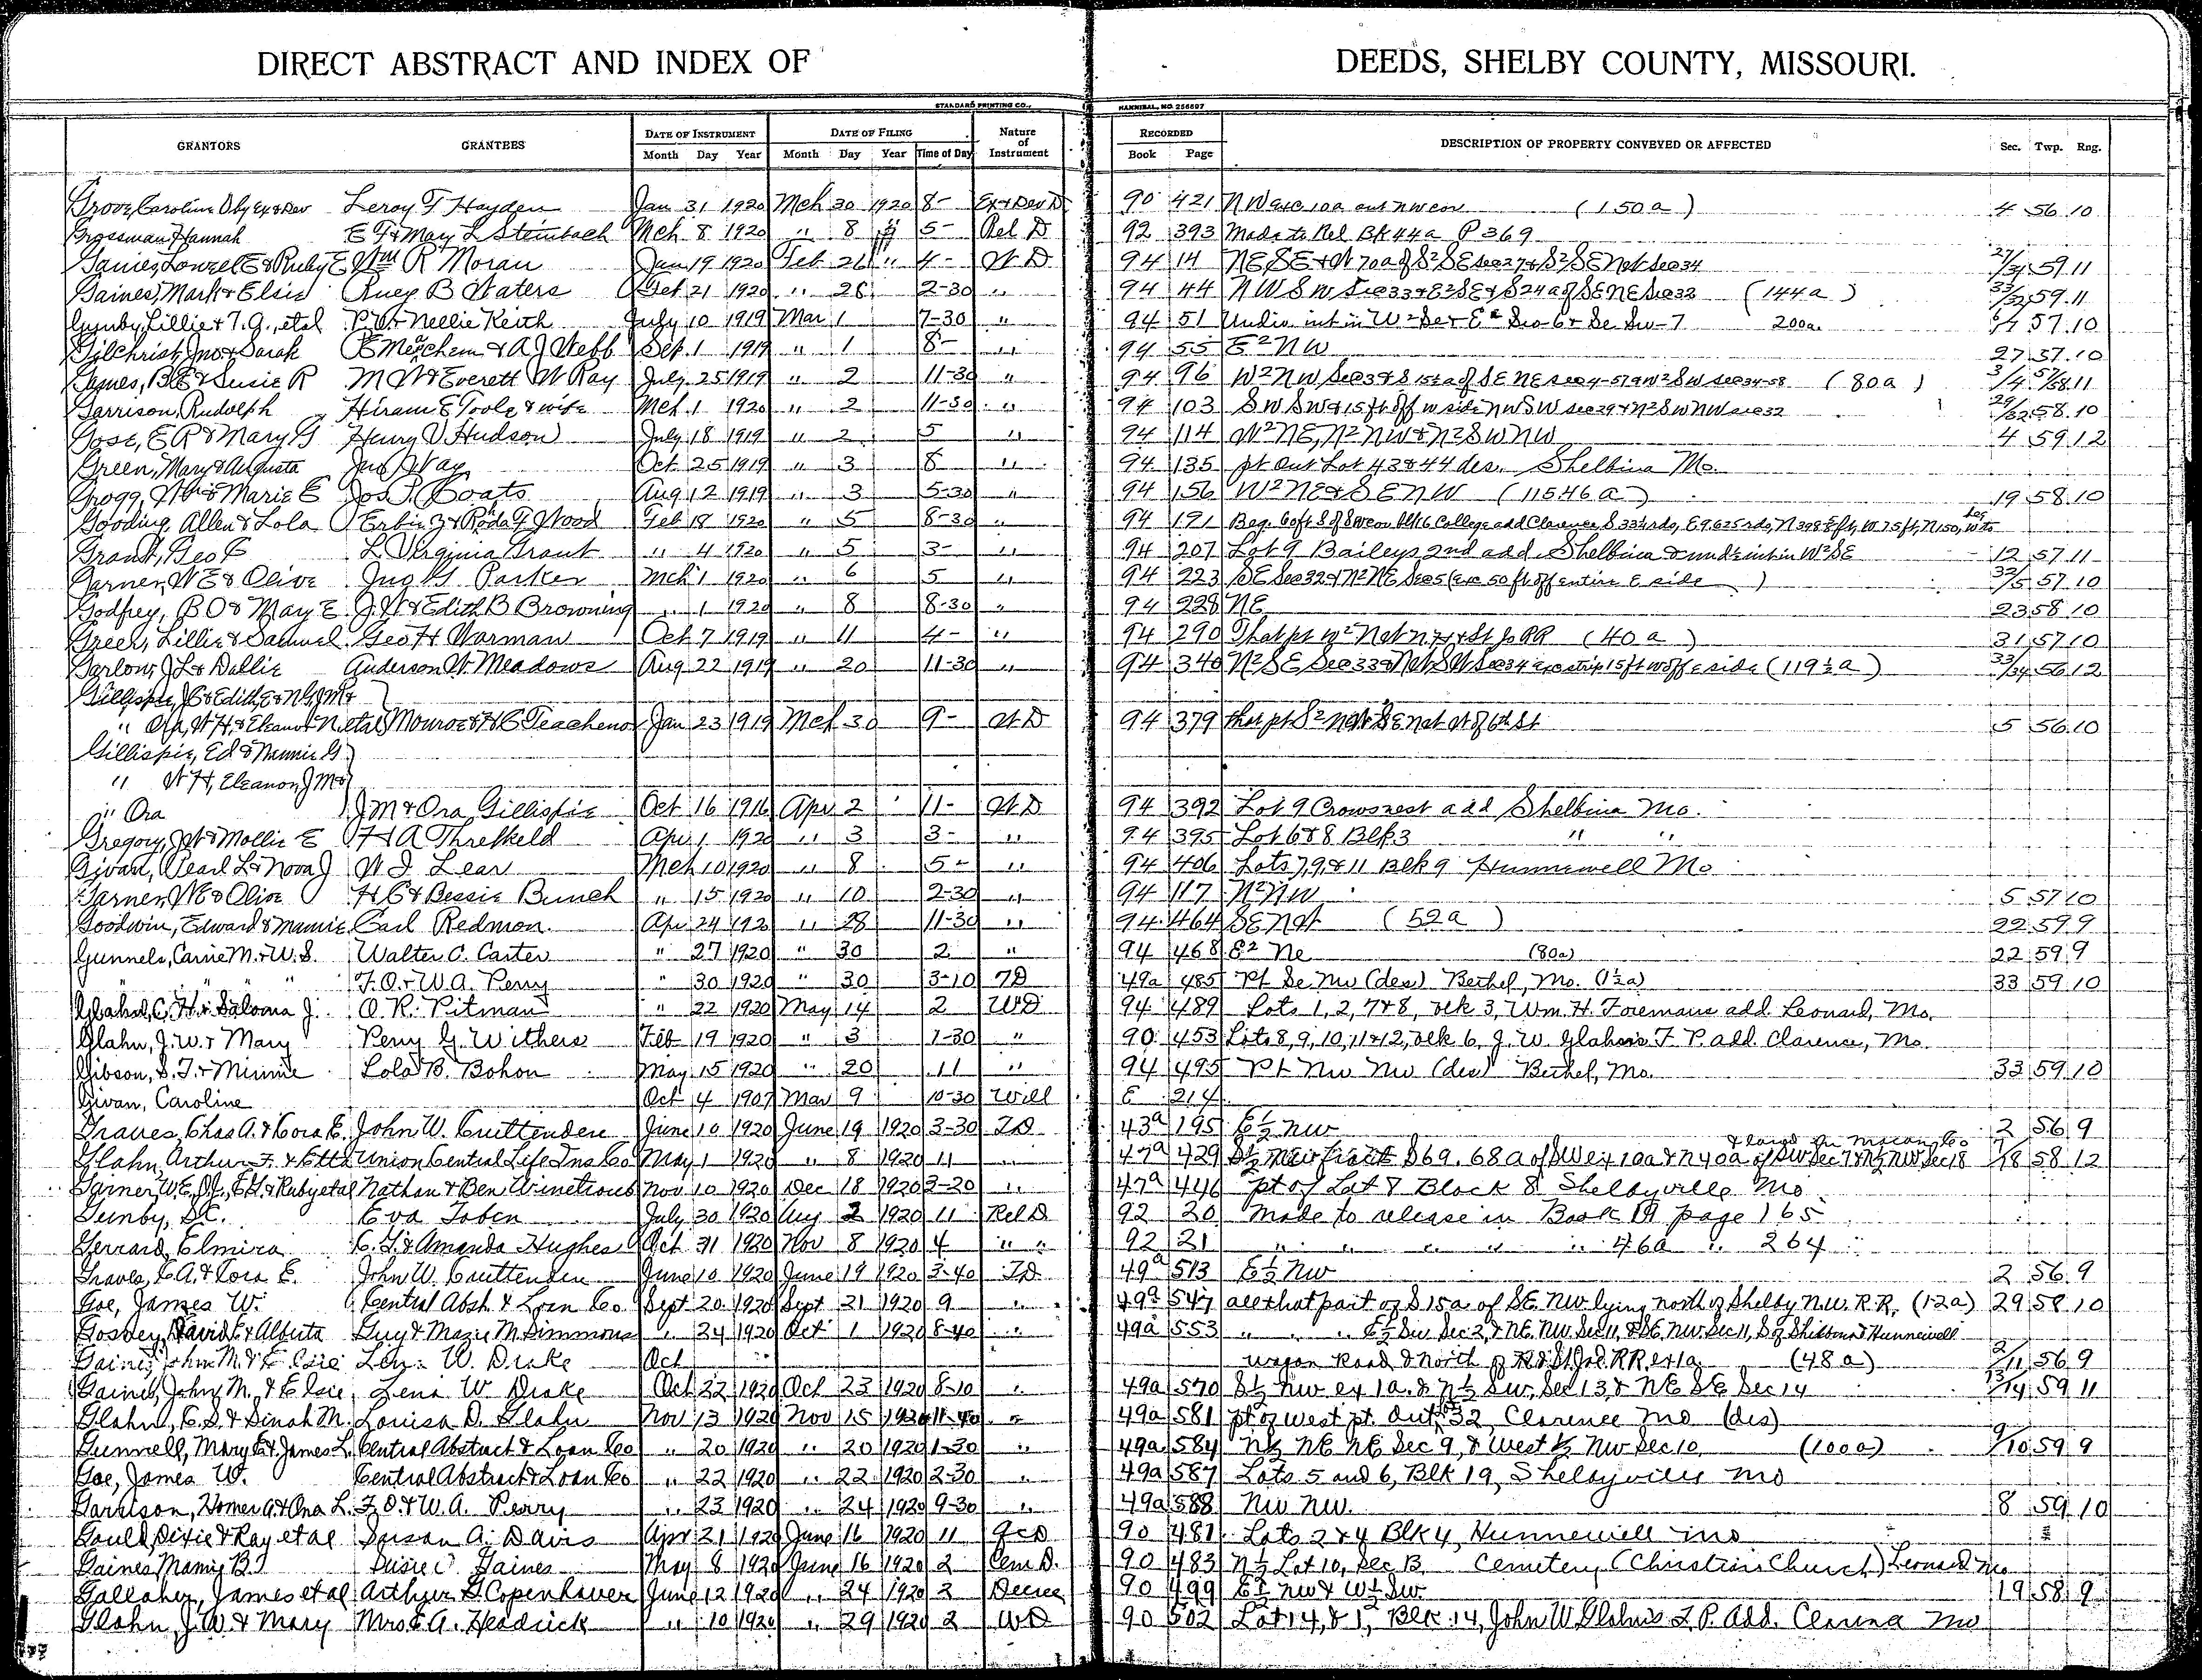 DIRECT ABSTRACT AND INDEX OF DEEDS, SHELBY COUNTY, MISSOURI.
STANDARD PRINTING CO., HANNIBAL, MO. 256897
GRANTORS GRANTEES DATE OF INSTRUMENT DATE OF FILING Nature of Instrument RECORDED DESCRIPTION OF PROPERTY CONVEYED OR AFFECTED Sec. Twp. Rng.
Month Day Year Month Day Year Time of Day Book Page
Grove, Caroline D by Ex & Dev Leroy F Hayden Jan 31 1920 Mch 30 1920 8- Ex & Dev D 90 421 NW exc 10a out NW cor (150a) 4 56 10
Grossman, Hannah E F & Mary L Steinbach Mch 8 1920 " 8 " 5- Rel D 92 393 Made to Rel Bk 44a P 369
Gaines, Lowell E & Ruby E Wm R Moran Jan 19 1920 Feb 26 " 4- W D 94 14 NE SE & N 70a of S2 SE Sec 27 & S2 SE NW Sec 34 27/34 59 11
Gaines, Mark & Elsie Ruey B Waters Oct 21 1920 " 28 2-30 " 94 44 NW SW Sec 33 & E2 SE & S 24a of SE NE Sec 32 (144a) 33/32 59 11
Gunby, Lillie & T. G., etal P. V. & Nellie Keith July 10 1919 Mar 1 7-30 " 94 51 Undiv int in W2 Se & E2 Sec 6 & Se Sw-7 200a. 57 10
Gilchrist, Jno & Sarah E Meachem & A J Webb Sep 1 1919 " 1 8- " 94 55 E2 NW 27 57 10
Gaines, B E & Susie R M W & Everett W Ray July 25 1919 " 2 11-30 " 94 96 W2 NW Sec 3 & S 15½a of SE NE Sec 4-57 & W2 SW Sec 34-58 (80a) 3/4 57/58 11
Garrison, Rudolph Hiram E Toole & wife Mch 1 1920 " 2 11-30 " 94 103 SW SW & 15 ft off W side NW SW Sec 29 & N2 SW NW Sec 32 29/32 58 10
Gose, E R & Mary G Henry V Hudson July 18 1919 " 2 5 " 94 114 W2 NE, N2 NW & N2 SW NW 4 59 12
Green, Mary & Augusta Jno Oct 25 1919 " 3 8 " 94 135 pt Out Lot 43 & 44 des. Shelbina Mo.
Grogg, Wm & Marie E Jos P. Coats Aug 12 1919 " 3 5-30 " 94 156 W2 NE & SE NW (115.46a) 19 58 10
Gooding, Allen & Lola Erbin Z & Roda F Wood Feb 18 1920 " 5 8-30 " 94 191 Beg. 60ft S of SW cor Blk 6 College add Clarence, S 33⅓ rds, E 9.625 rds, N 398 ft, W 75 ft, N 150, W to beg
Grant, Geo C L Virginia Grant " 4 1920 " 5 3- " 94 207 Lot 9 Baileys 2nd add Shelbina & und ½ int in W2 SE 12 57 11
Garner, W E & Olive Jno G Parker Mch 1 1920 " 6 5 " 94 223 SE Sec 32 & N2 NE Sec 5 (exc 50 ft off entire E side) 32/5 57 10
Godfrey, B O & May E J. W & Edith B Browning " 1 1920 " 8 8-30 " 94 228 NE 23 58 10
Green, Lillie & Samuel Geo H Warman Oct 7 1919 " 11 4- " 94 290 That pt W2 NW N H & St Jo RR (40a) 31 57 10
Garlow, J L & Dallie Anderson W. Meadows Aug 22 1919 " 20 11-30 " 94 340 N2 SE Sec 33 & NW SW Sec 34 exc strip 15 ft w off E side (119½a) 33/34 56 12
Gillispie, J C & Edith, E & N G, J M &
" Ora, W H, & Eleanor N etal Monroe & H C Teachenor Jan 23 1919 Mch 30 9- W D 94 379 that pt S2 NW & SE NW W of 6th St 5 56 10
Gillispie, Ed & Nannie G
" W H, Eleanor, J M &
" Ora J M & Ora Gillispie Oct 16 1916 Apr 2 11- W D 94 392 Lot 9 Crowsnest add Shelbina Mo.
Gregory, J W & Mollie E H A Threlkeld Apr 1 1920 " 3 3- " 94 395 Lot 6 & 8 Blk 3 " "
Givan, Pearl L & Nova J W I Lear Mch 10 1920 " 8 5- " 94 406 Lots 7, 9, & 11 Blk 9 Hunnewell Mo
Garner, W E & Olive H C & Bessie Bunch " 15 1920 " 10 2-30 " 94 117 N2 NW 5 57 10
Goodwin, Edward & Mamie Carl Redmon Apr 24 1920 " 28 11-30 " 94 464 SE NW (52a) 22 59 9
Gunnels, Carrie M. & W. S. Walter C. Carter " 27 1920 " 30 2 " 94 468 E2 Ne (80a) 22 59 9
" " " F. O. & W. A. Perry " 30 1920 " 30 3-10 TD 49a 485 Pt Se Nw (des) Bethel, Mo. (1½a) 33 59 10
Glahn, C. H. & Saloma J. O. R. Pitman " 22 1920 May 14 2 WD 94 489 Lots 1, 2, 7 & 8, Blk 3, Wm. H. Foremans add. Leonard, Mo.
Glahn, J. W. & Mary Perry G. Withers Feb 19 1920 " 3 1-30 " 90 453 Lots 8, 9, 10, 11 & 12, Blk 6, J. W. Glahns F. P. add. Clarence, Mo.
Gibson, S. T. & Minnie Lola B. Bohon May 15 1920 " 20 11 " 94 495 Pt Nw Nw (des) Bethel, Mo. 33 59 10
Givan, Caroline Oct 4 1907 Mar 9 10-30 Will E 214
Graves, Chas A. & Cora E. John W. Cruttenden June 10 1920 June 19 1920 3-30 TD 43a 195 E½ NW 2 56 9
Glahn, Arthur F. & Etta Union Central Life Ins Co May 1 1920 " 8 1920 11 " 47a 429 S 69.68a of SW ex 10a & N 40a of SW Sec 7 & N½ NW Sec 18 & land in Macon Co 7/18 58 12
Garner, W. E., & Ruby etal Nathan & Ben Winetrous Nov 10 1920 Dec 18 1920 3-20 " 47a 446 pt of Lot 7 Block 8 Shelbyville Mo
Gunby, S. C. Eva Tobin July 30 1920 Aug 2 1920 11 Rel D 92 20 Made to release in Book page 165
Gerrard, Elmira C. F. & Amanda Hughes Oct 31 1920 Nov 8 1920 4 " " 92 21 " " " " " 46a " 264
Graves, C. A. & Cora E. John W. Cruttenden June 10 1920 June 19 1920 3-40 TD 49a 513 E½ NW 2 56 9
Goe, James W. Central Abst. & Loan Co Sept 20 1920 Sept 21 1920 9 " 49a 547 all that part of S 15a of SE NW lying north of Shelby N.W. R.R. (12a) 29 58 10
Gosney, David E & Alberta Guy & Mazie M. Simmons " 24 1920 Oct 1 1920 8-40 " 49a 553 " " " E½ Sw Sec 2, & NE NW Sec 11, & SE NW Sec 11, S of Shelbina & Hunnewell
Gaines, John M. & Elsie Lena W. Drake Oct wagon Road & North of H & St Joe R R ex 1a (48a) 2/11 56 9
Gaines, John M. & Elsie, Lena W. Drake Oct 22 1920 Oct 23 1920 8-10 " 49a 570 S½ NW ex 1a. & N½ SW, Sec 13, & NE SE Sec 14 13/14 59 11
Glahn, E. S. & Sinah M. Louisa D. Glahn Nov 13 1920 Nov 15 1920 11-40 " 49a 581 pt of West pt. Out Lot 32, Clarence Mo (des)
Gunnell, Mary E. & James L. Central Abstract & Loan Co " 20 1920 " 20 1920 1-30 " 49a 584 N½ NE NE Sec 9, & West ½ NW Sec 10 (100a) 9/10 59 9
Goe, James W. Central Abstract & Loan Co " 22 1920 " 22 1920 2-30 " 49a 587 Lots 5 and 6, Blk 19, Shelbyville Mo
Garrison, Homer A. & Ona L. F. O. & W. A. Perry " 23 1920 " 24 1920 9-30 " 49a 588 NW NW. 8 59 10
Gould, Dixie & Ray et al Susan A. Davis Apr 21 1920 June 16 1920 11 QCD 90 481 Lots 2 & 4 Blk 4, Hunnewell Mo
Gaines, Mamie B. Susie C Gaines May 8 1920 June 16 1920 2 Cem D. 90 483 N½ Lot 10, Sec B, Cemetery (Christian Church) Leonard Mo
Gallaher, James et al Arthur G. Copenhaver June 12 1920 " 24 1920 2 Decree 90 499 E½ NW & W½ SW. 19 58 9
Glahn, J. W. & Mary Mrs E A. Headrick " 10 1920 " 29 1920 2 WD 90 502 Lot 14, & 1, Blk. 14, John W Glahns F. P. Add. Clarence Mo